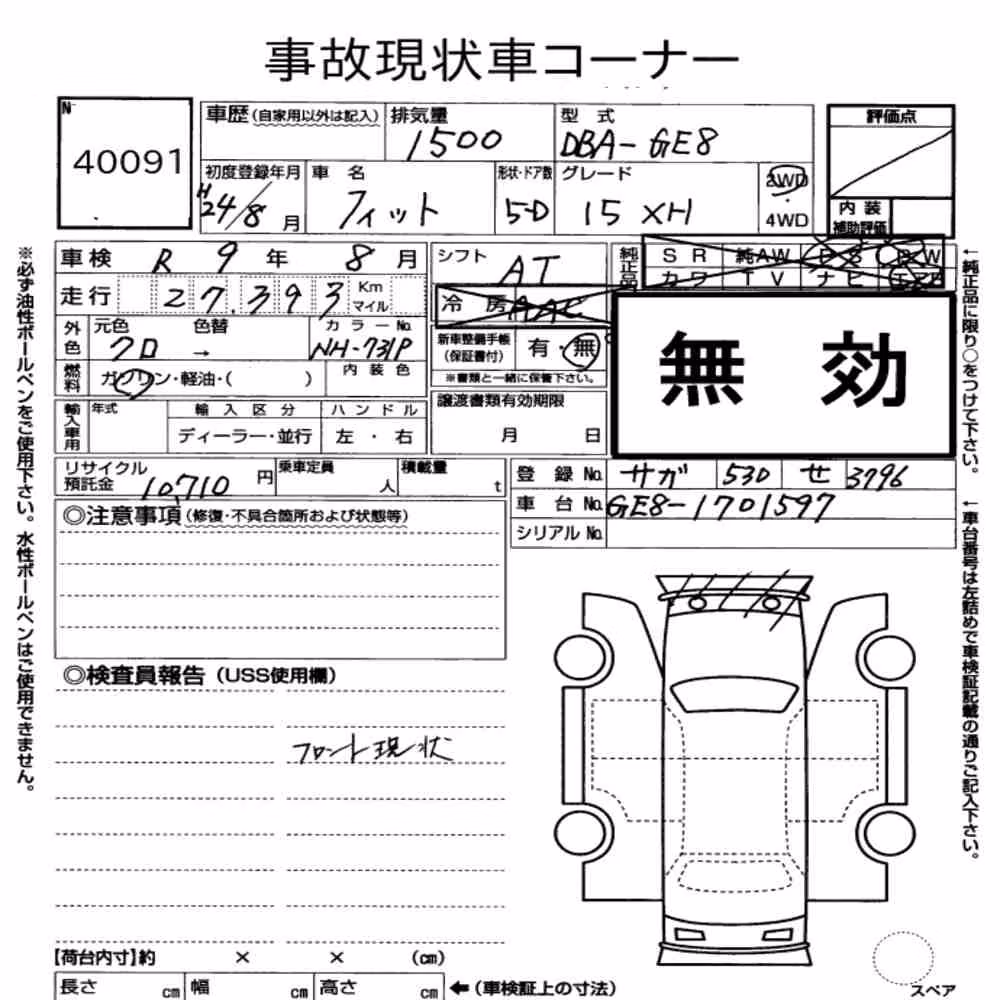 事故現状車コーナー
N
40091
車歴(自家用以外は記入) 排気量 1500 型式 DBA-GE8 評価点
初度登録年月 H24/8月 車名 フィット 形状・ドア数 5-D グレード 15 XH 2WD 4WD
内装 補助評価
車検 R 9年 8月 シフト AT 純正品 SR 純AW PS PW
走行 27,393 Km マイル 冷房 AAC カワ TV ナビ エアB
外色 元色 クロ → 色替 カラーNo. NH-731P 新車整備手帳(保証書付) 有・無
※書類と一緒に保管下さい。
燃料 ガソリン・軽油・( ) 内装色
無効
輸入車用 年式 輸入区分 ディーラー・並行 ハンドル 左・右 譲渡書類有効期限 月 日
リサイクル預託金 10,710円 乗車定員 人 積載量 t 登録No. サガ 530 せ 3796
車台No. GE8-1701597
シリアルNo.
◎注意事項(修復・不具合箇所および状態等)
◎検査員報告(USS使用欄)
フロント現状
【荷台内寸】約 × × (cm)
長さ cm 幅 cm 高さ cm ←(車検証上の寸法)
スペア
※必ず油性ボールペンをご使用下さい。水性ボールペンはご使用できません。
←純正品に限り○をつけて下さい。
←車台番号は左詰めで車検証記載の通りご記入下さい。